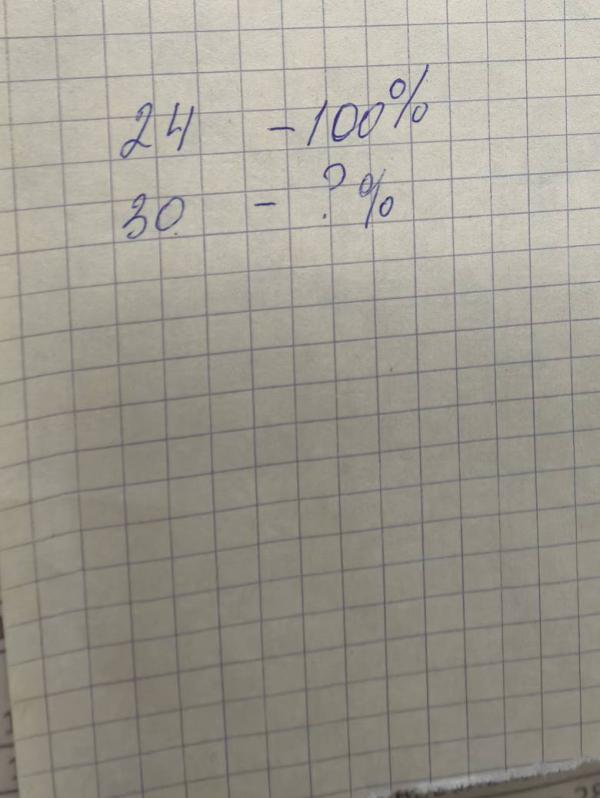 24 - 100%
30 - ?%